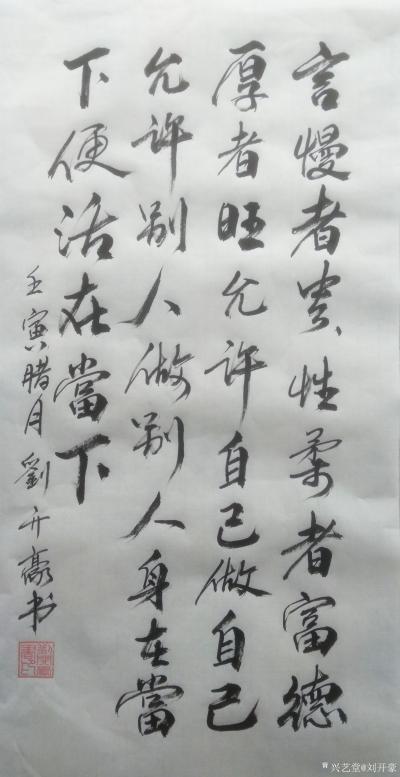 言慢者贵性柔者富德
厚者旺允许自己做自己
允许别人做别人身在當
下便活在當下
壬寅腊月劉开豪书
兴艺堂@刘开豪